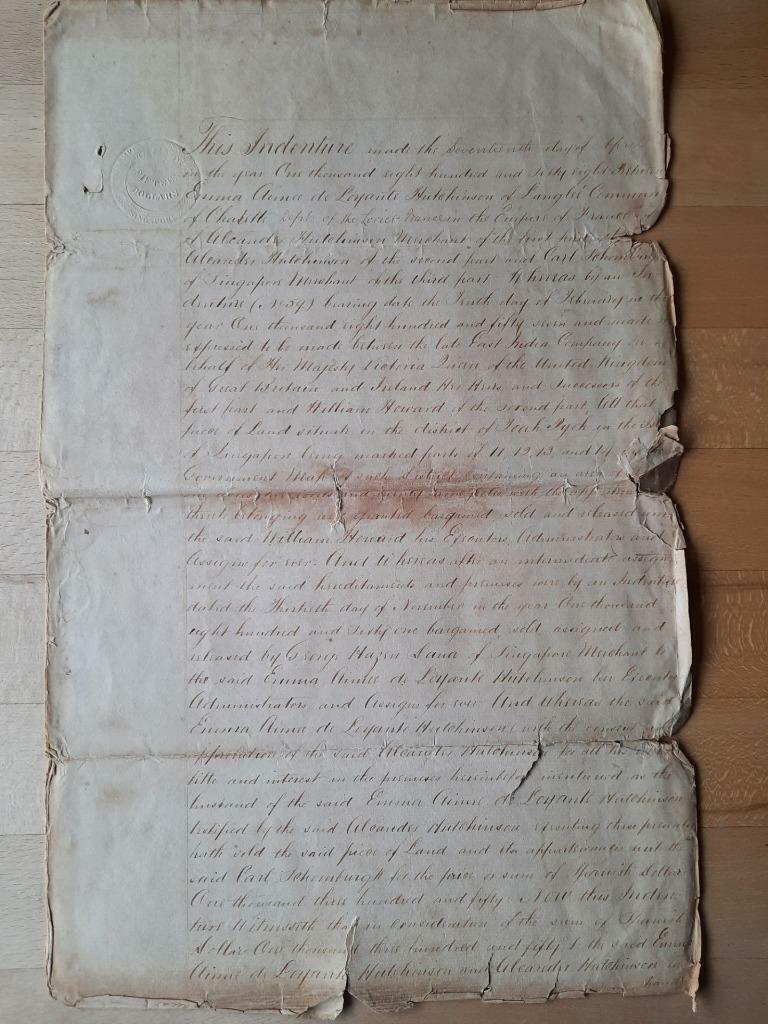 This Indenture made the Seventeenth day of April
in the year One thousand eight hundred and sixty eight Between
Emma Aimee de Loyante Hutchinson of Langlée Commun
of Chalette Dept. of the Loiret France in the Empire of France
of Alexander Hutchinson Merchant of the first part the
Alexander Hutchinson of the second part and Carl Schomburgk
of Singapore Merchant of the third part Whereas by an In
denture (No 59) bearing date the Tenth day of February in the
year One thousand eight hundred and fifty seven and made
expressed to be made between the late East India Company on
behalf of Her Majesty Victoria Queen of the United Kingdom
of Great Britain and Ireland Her Heirs and Successors of the
first part and William Howard of the second part, All that
piece of Land situate in the district of in the
of Singapore being marked parts of 11, 12, 13 and 14
Government Map of such District containing an area
and ninety nine with the
thereto belonging was granted bargained, sold and released unto
the said William Howard his Executors, Administrators and
Assigns for ever. And Whereas after an intermediate assign
ment the said hereditaments and premises were by an Indenture
dated the Thirtieth day of November in the year One thousand
eight hundred and sixty one bargained, sold assigned and
released by George Hazen Dana of Singapore Merchant to
the said Emma Aimée de Loyante Hutchinson her Executors
Administrators and Assigns for ever And Whereas the said
Emma Aimee de Loyante Hutchinson (with the consent
approbation of the said Alexander Hutchinson for all his
title and interest in the premises hereinbefore mentioned as the
husband of the said Emma Aimee de Loyante Hutchinson
testified by the said Alexander Hutchinson executing these presents
hath sold the said piece of Land and its appurtenances unto the
said Carl Schomburgk for the price or sum of Spanish Dollars
One thousand three hundred and fifty. Now this Inden
ture Witnesseth that in consideration of the sum of Spanish
Dollars One thousand three hundred and fifty to the said Emma
Aimee de Loyante Hutchinson and Alexander Hutchinson in
hand
DOLLARS